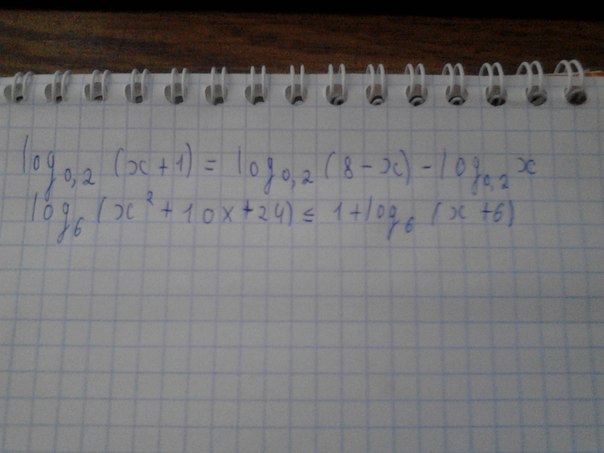 log₀,₂ (x+1) = log₀,₂ (8-x) - log₀,₂ x
log₆ (x² + 10x + 24) ≤ 1 + log₆ (x+6)